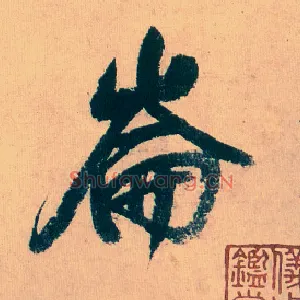 崙
Shufawang.CN
儀
鑑